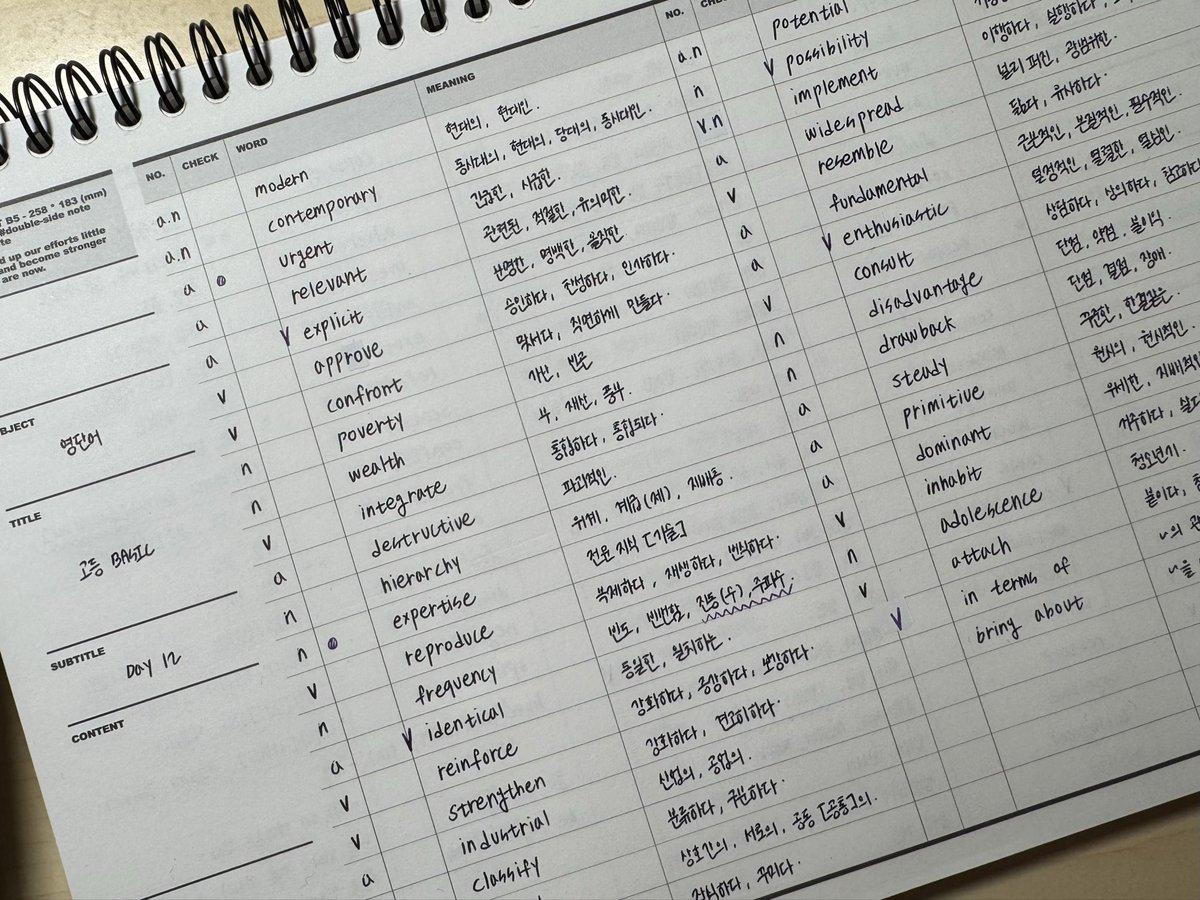 T B5 - 258 * 183 (mm)
#double-side note
d up our efforts little
and become stronger
are now.
BJECT
영단어
TITLE
고등 BASIC
SUBTITLE
Day 12
CONTENT
NO. CHECK WORD MEANING
a.n modern 현대의, 현대인.
a.n contemporary 동시대의, 현대의, 당대의, 동시대인.
a urgent 긴급한, 시급한.
a relevant 관련된, 적절한, 유의미한.
a explicit 분명한, 명백한, 솔직한
v approve 승인하다, 찬성하다, 인가하다.
v confront 맞서다, 직면하게 만들다.
n poverty 가난, 빈곤
n wealth 부, 재산, 풍부.
v integrate 통합하다, 통합되다.
a destructive 파괴적인.
n hierarchy 위계, 계급(제), 지배층.
n expertise 전문 지식 [기술]
v reproduce 복제하다, 재생하다, 번식하다.
n frequency 빈도, 빈번함, 진동(수), 주파수.
a identical 동일한, 일치하는.
v reinforce 강화하다, 증강하다, 보강하다.
v strengthen 강화하다, 견고히하다.
a industrial 산업의, 공업의.
classify 분류하다, 구분하다.
상호간의, 서로의, 공동 [공통]의.
장식하다, 꾸미다.
NO.
a.n potential
n possibility
v.n implement 이행하다, 실행하다,
a widespread 널리 퍼진, 광범위한.
v resemble 닮다, 유사하다.
a fundamental 근본적인, 본질적인, 필수적인.
a enthusiastic 열정적인, 열렬한, 열심인
v consult 상담하다, 상의하다, 참고하다
n disadvantage 단점, 약점, 불이익
n drawback 단점, 결점, 장애.
a steady 꾸준한, 한결같은.
a primitive 원시의, 원시적인.
a dominant 우세한, 지배적인
v inhabit 거주하다, 살다
n adolescence 청소년기.
v attach 붙이다,
in terms of
bring about